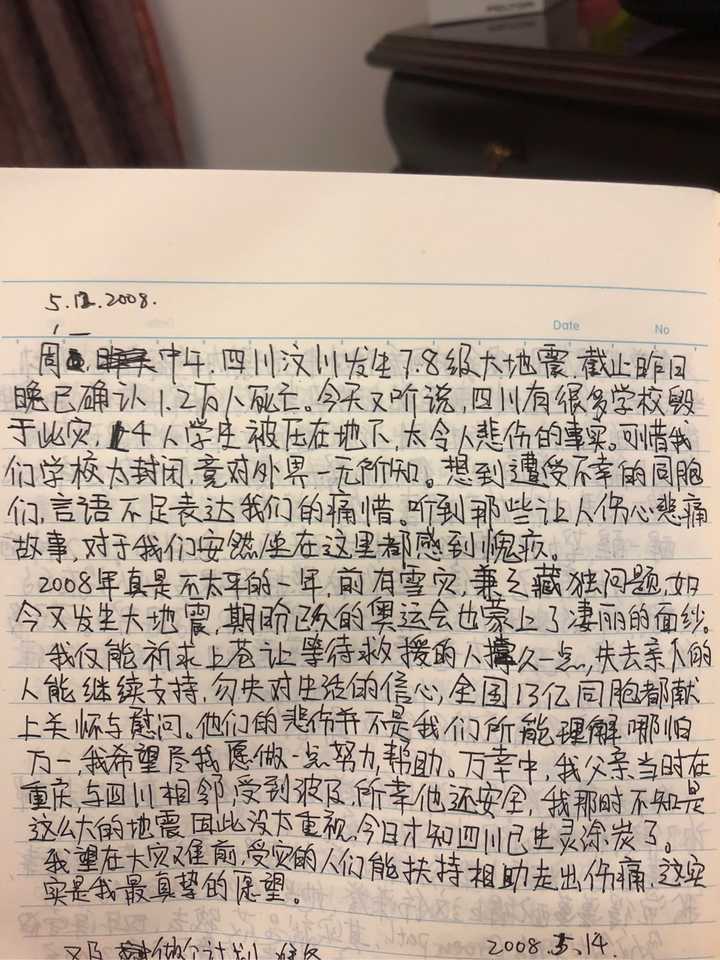 5.12.2008.
Date No
周一, 中午,四川汶川发生7.8级大地震,截止昨日
晚已确认1.2万人死亡。今天又听说,四川有很多学校毁
于此灾, 4人学生被压在地下,太令人悲伤的事实。可惜我
们学校太封闭,竟对外界一无所知。想到遭受不幸的同胞
们,言语不足表达我们的痛惜。听到那些让人伤心悲痛
故事,对于我们安然坐在这里都感到愧疚。
2008年真是不太平的一年,前有雪灾,兼之藏独问题,如
今又发生大地震,期盼已久的奥运会也蒙上了凄丽的面纱。
我仅能祈求上苍让等待救援的人撑久一点,失去亲人的
人能继续支持,勿失对生活的信心,全国13亿同胞都献
上关怀与慰问。他们的悲伤并不是我们所能理解哪怕
万一,我希望尽我愿做一点努力,帮助。万幸中,我父亲当时在
重庆,与四川相邻,受到波及,所幸他还安全,我那时不知是
这么大的地震 因此没太重视,今日才知四川已生灵涂炭了。
我望在大灾难前,受灾的人们能扶持相助走出伤痛,这实
实是我最真挚的愿望。
2008.5.14.
又及 做个计划